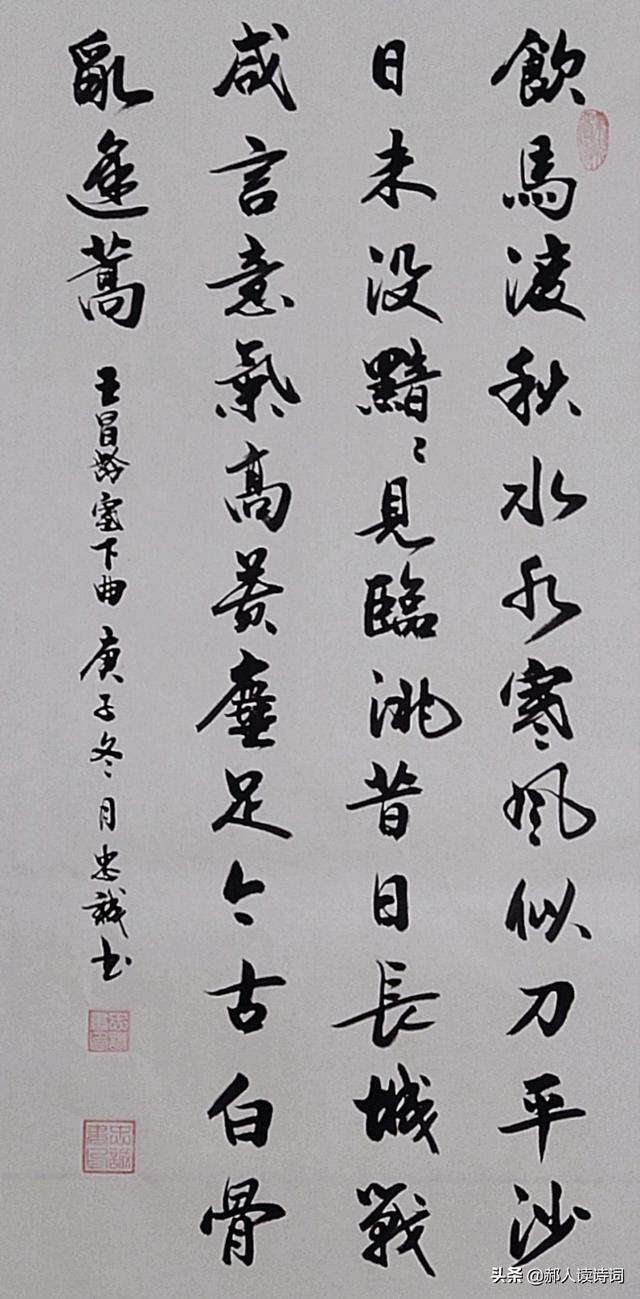 飲馬淩秋水水寒風似刀平沙
日未没黯〻見臨洮昔日長城戰
咸言意氣高黄塵足今古白骨
亂蓬蒿
王昌齡塞下曲 庚子冬月忠誠书
头条 @郝人读诗词